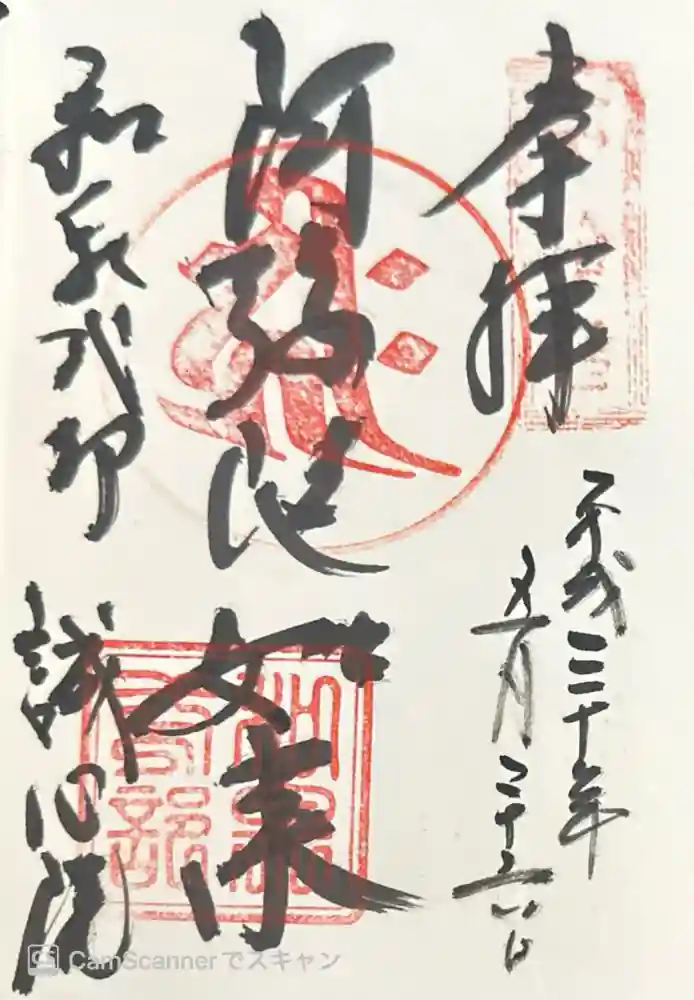 奉拝
平成三十年
五月二十六日
阿弥陀如来
誠心院
CamScannerでスキャン